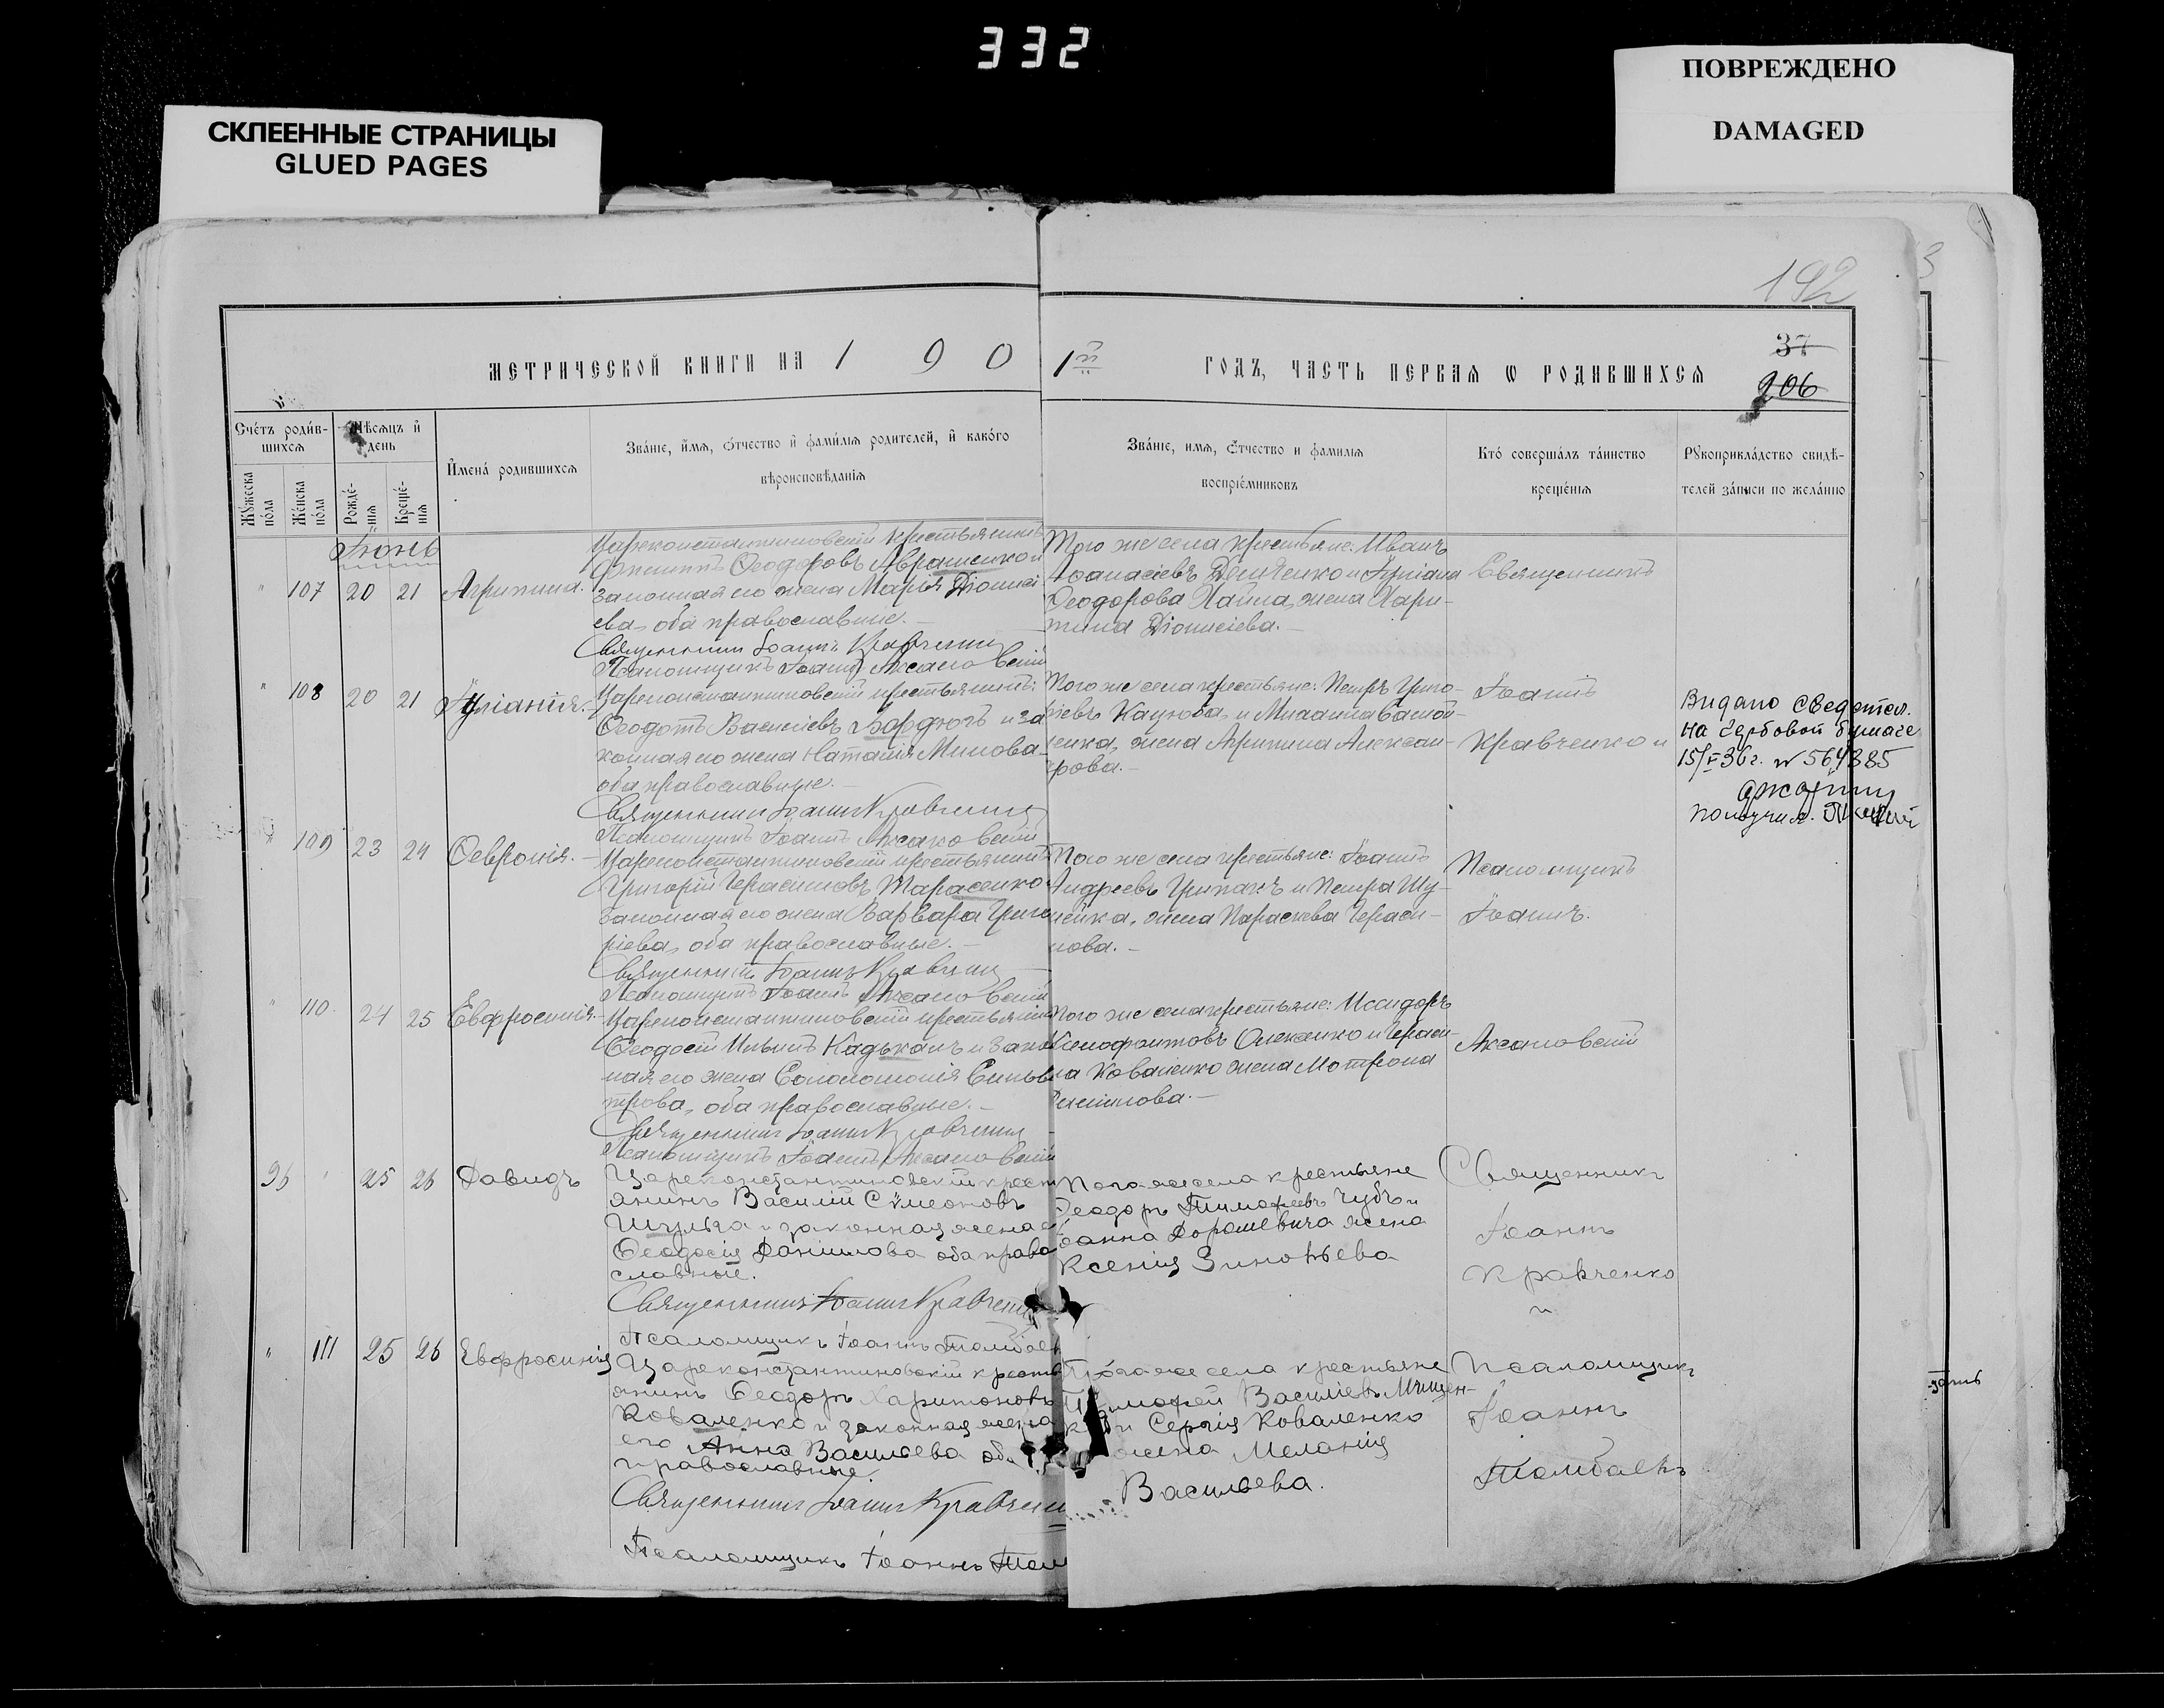 332
СКЛЕЕННЫЕ СТРАНИЦЫ
GLUED PAGES
ПОВРЕЖДЕНО
DAMAGED
192
3
МЕТРИЧЕСКОЙ КНИГИ НА 1 9 0 1й ГОДЪ, ЧАСТЬ ПЕРВАЯ Ѡ РОДИВШИХСЯ
37
206
Счетъ родившихся
Мѣсяцъ и день
Имена родившихся
Званіе, имя, отчество и фамилія родителей, и какого
вѣроисповѣданія
Званіе, имя, отчество и фамилія
воспріемниковъ
Кто совершалъ таинство
крещенія
Рукоприкладство свидѣ-
телей записи по желанію
Мужеска пола
Женска пола
Рожденія
Крещенія
Іюнь
" 107 20 21 Агрипина.
Цареконстантиновскій крестьянинъ
Ѳеодоровъ Аврашенко и
законная его жена Марія Діонисі
ева, оба православные.
Священникъ Іоаннъ Кравченко
Псаломщикъ Іоаннъ Аксаковскій
Того же села крестьяне: Иванъ
Аѳанасіевъ Демченко и Іуліана
Ѳеодорова жена Хари-
тина Діонисіева.
Священникъ
" 108 20 21 Іуліанія.
Цареконстантиновскій крестьянинъ
Ѳеодотъ Василіевъ Бордюгъ и за
конная его жена Наталія Минова
оба православные.
Священникъ Іоаннъ Кравченко
Псаломщикъ Іоаннъ Аксаковскій
Того же села крестьяне: Петръ Григо-
ріевъ Кацюба, и Михаила
жена Агрипина Алексан-
дрова.
Іоаннъ
Кравченко и
Видано сведетел.
на гербовой бумаге
15/V 36г. № 564385
получил.
" 109 23 24 Ѳевронія.
Цареконстантиновскій крестьянинъ
Григорій Герасимовъ Тарасенко
законная его жена Варвара Григо
ріева, оба православные.
Священникъ Іоаннъ Кравченко
Псаломщикъ Іоаннъ Аксаковскій
Того же села крестьяне: Іоаннъ
Андреевъ и Петра Шу-
лейка, жена Параскева Гераси-
мова.
Псаломщикъ
Іоаннъ.
" 110 24 25 Евфросинія.
Цареконстантиновскій крестьянинъ
Ѳеодосій Ильинъ Кадькалъ и закон
ная его жена Соломонія Сильве
трова, оба православные.
Священникъ Іоаннъ Кравченко
Псаломщикъ Іоаннъ Аксаковскій
Того же села крестьяне: Исидоръ
Ксенофонтовъ Олексенко и Гераси-
ма Коваленко жена Мотрона
Аксаковскій
96 " 25 26 Давидъ
Цареконстантиновскій крест
янинъ Василій Сѵмеоновъ
Шульга и законная жена е
Ѳеодосія Данішлова оба право
славные.
Священникъ Іоаннъ Кравченко
Псаломщикъ Іоаннъ Томбаев
Того же села крестьяне
Ѳеодоръ Тимофеевъ Чубъ и
Іоанна Дорошевича жена
Ксенія Зиновьева
Священникъ
Іоаннъ
Кравченко
и
" 111 25 26 Евфросинія
Цареконстантиновскій крестья
янинъ Ѳеодоръ Харитоновъ
Коваленко и законная жена
его Анна Васильева оба
православные.
Священникъ Іоаннъ Кравченко
Псаломщикъ Іоаннъ Том
Того же села крестьяне
Тимофей Василіевъ Мищен-
ко и Сергія Коваленко
жена Меланія
Васильева.
Псаломщикъ
Іоаннъ
Томбаевъ